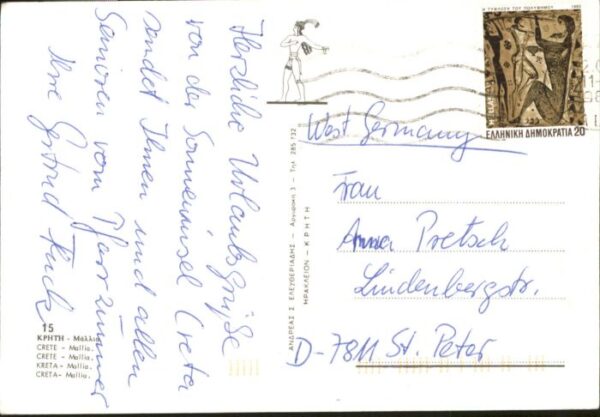 Herzliche Urlaubsgrüße
von der Sonneninsel Creta
sendet Ihnen und allen
Senioren vom Pfarrzimmer
Ihre Gertrud Fuchs
15
ΚΡΗΤΗ - Μάλλια
CRETE - Mallia.
CRETE - Mallia.
KRETA - Mallia.
CRETA - Mallia.
ΑΝΔΡΕΑΣ Σ. ΕΛΕΥΘΕΡΙΑΔΗΣ - Αργυράκη 3 - Τηλ. 285 732
ΗΡΑΚΛΕΙΟΝ - ΚΡΗΤΗ
Η ΤΥΦΛΩΣΗ ΤΟΥ ΠΟΛΥΦΗΜΟΥ 1983
ΕΛΛΗΝΙΚΗ ΔΗΜΟΚΡΑΤΙΑ 20
West Germany
Frau
Anna Pretsch
Lindenbergstr.
D-7811 St. Peter